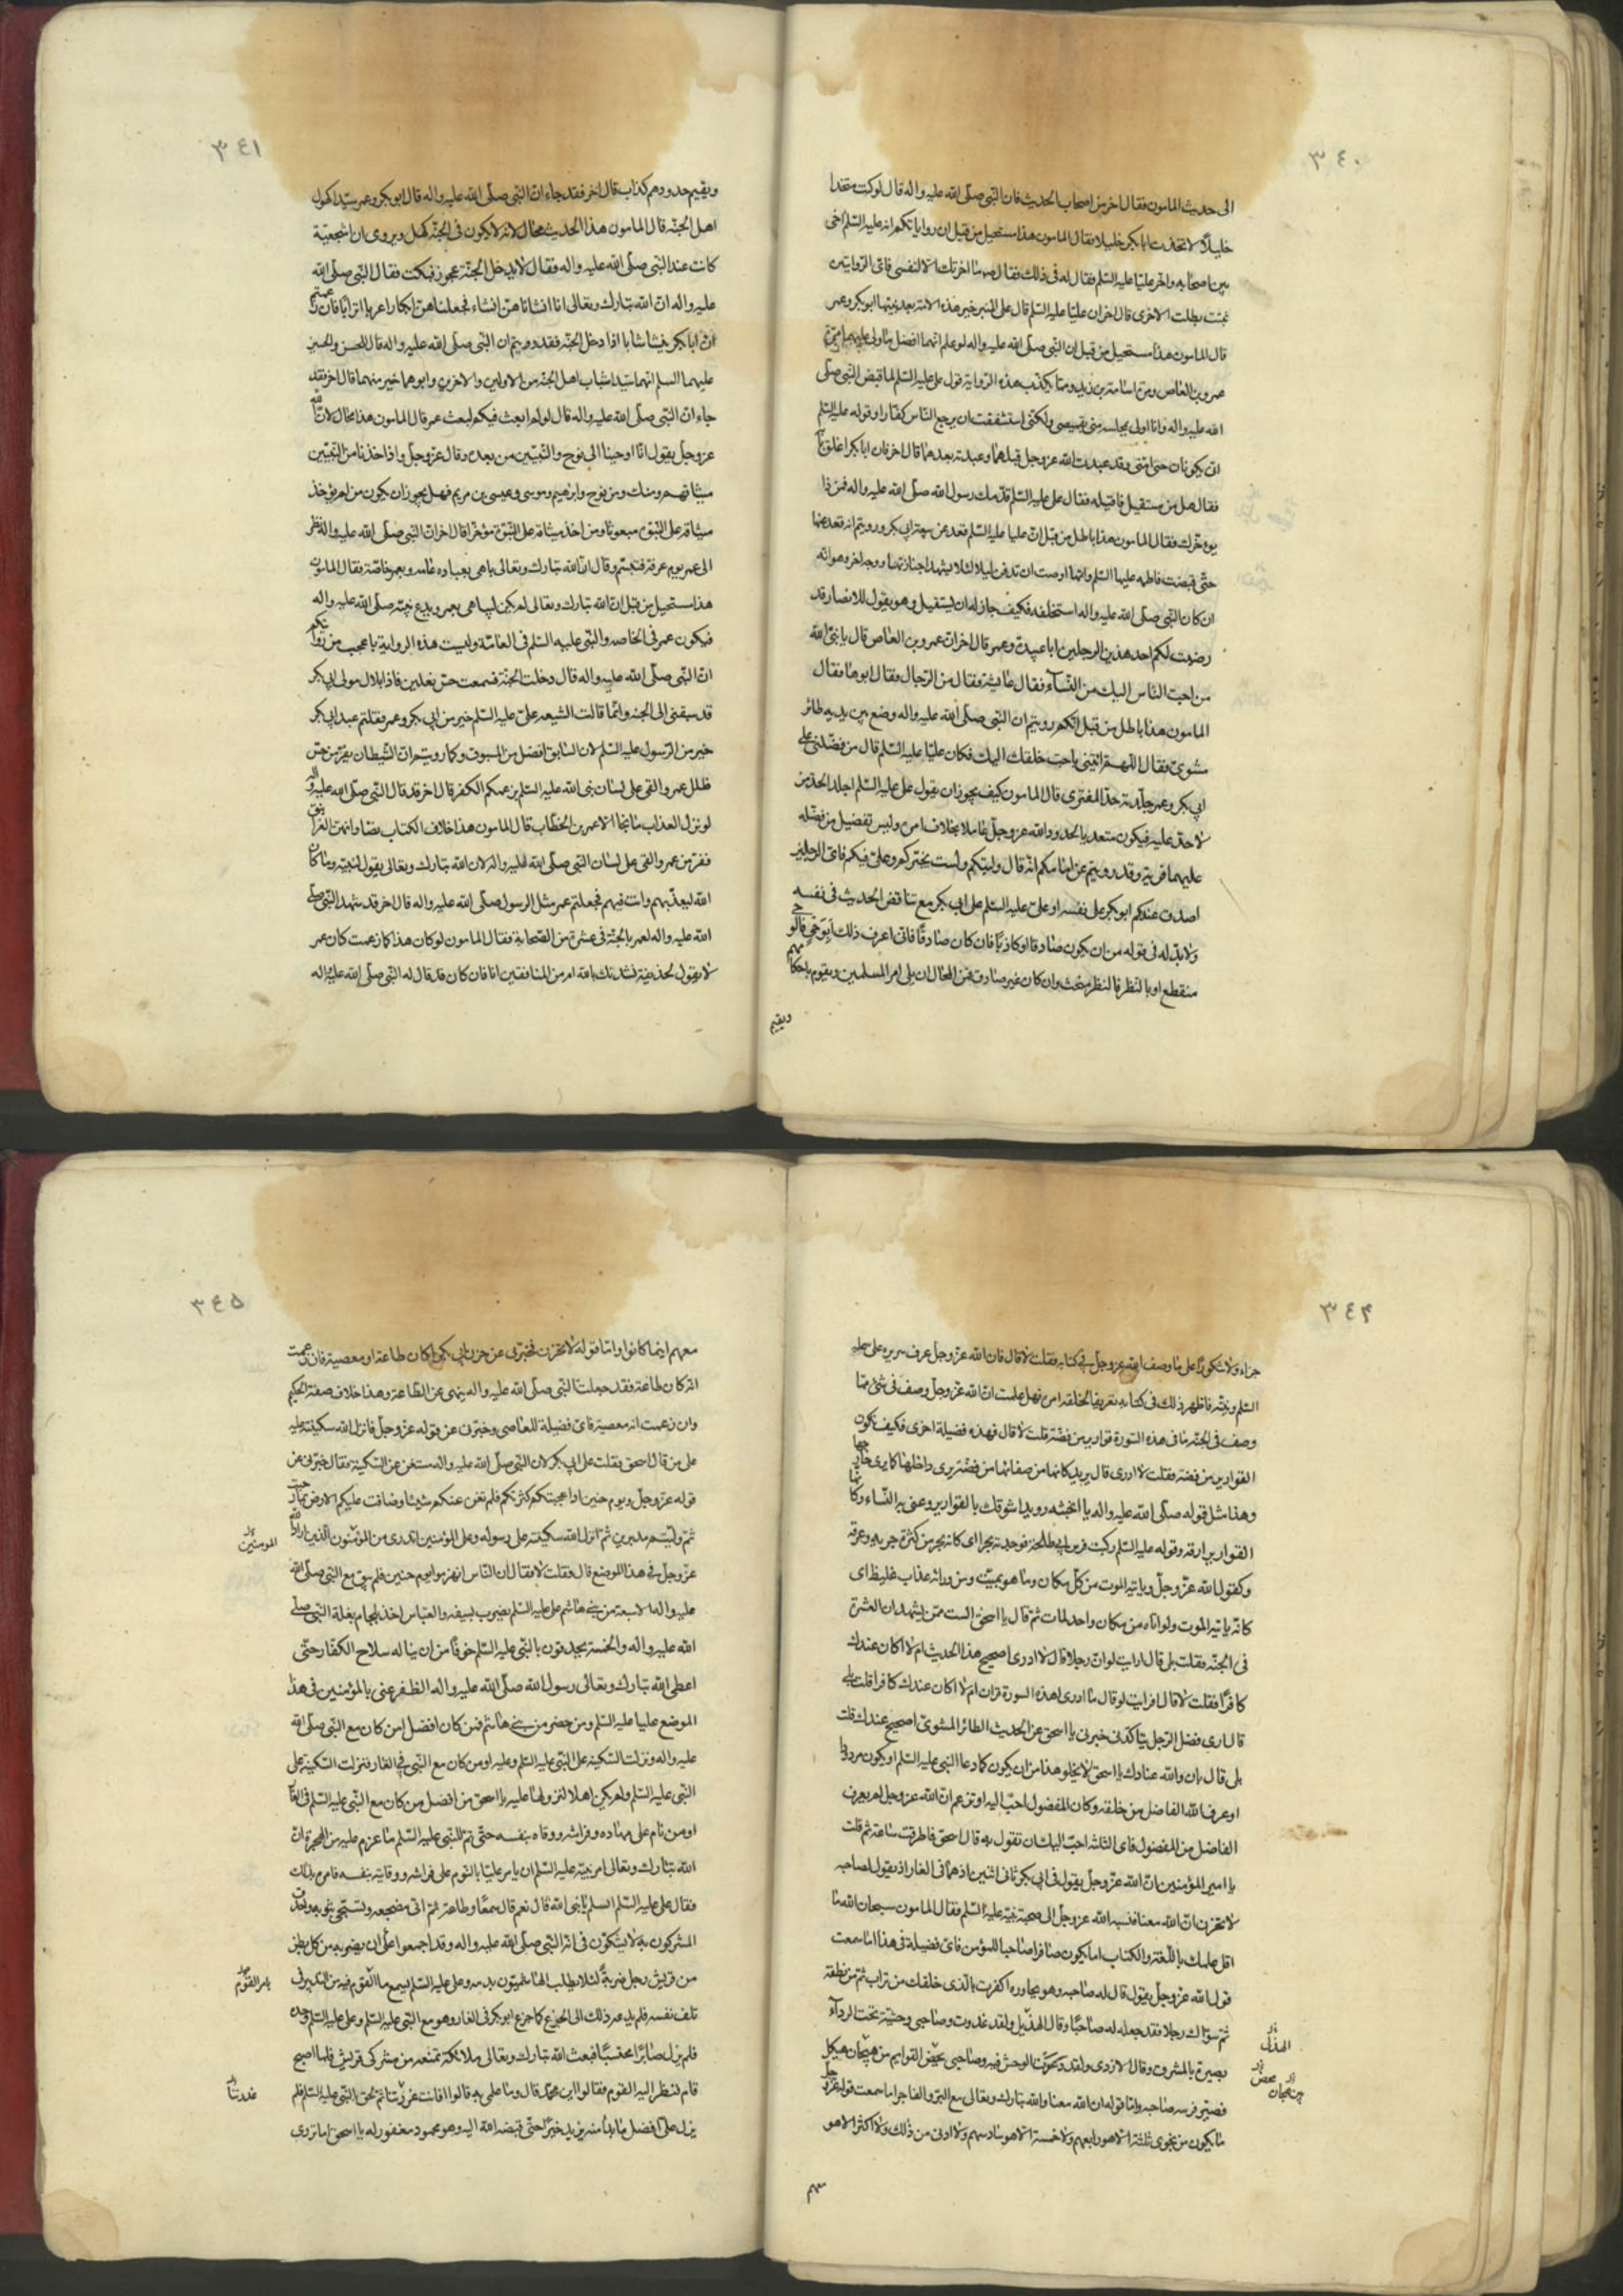 ٣٤٠
الى حديث المامون فقال اخر من اصحاب الحديث فان النبى صلى الله عليه واله قال لو كنت متخذا
خليلا لاتخذت ابا بكر خليلا فقال المامون هذا مستحيل من قبل ان رواياتكم انه عليه السلم اخى
بين اصحابه واخر عليا عليه السلم فقال له فى ذلك فقال ما اخرتك الا لنفسى فاى الروايتين
ثبتت بطلت الاخرى قال اخر ان عليا عليه السلم قال على المنبر خير هذه الامة بعد نبيها ابو بكر وعمر
قال المامون هذا مستحيل من قبل ان النبى صلى الله عليه واله لو علم انهما افضل ما ولى عليهما مرة
عمرو بن العاص ومرة اسامة بن زيد ومما يكذب هذه الرواية قول على عليه السلم لما قبض النبى صلى
الله عليه واله وانا اولى بمجلسه منى بقميصى ولكنى اشفقت ان يرجع الناس كفارا وقوله عليه السلم
انى يكونان خيرا منى وقد عبدت الله عز وجل قبلهما وعبدته بعدهما قال اخر فان ابا بكر اغلق بابه
فقال هل من مستقيل فاقيله فقال على عليه السلم قدمك رسول الله صلى الله عليه واله فمن ذا
يوخرك فقال المامون هذا باطل من قبل ان عليا عليه السلم قعد عن بيعة ابى بكر ورويتم انه قعد عنها
حتى قبضت فاطمه عليها السلم وانها اوصت ان تدفن ليلا لئلا يشهدا جنازتها ووجه اخر وهو انه
ان كان النبى صلى الله عليه واله استخلفه فكيف جاز له ان يستقيل وهو يقول للانصار قد
رضيت لكم احد هذين الرجلين ابا عبيدة وعمر قال اخر ان عمرو بن العاص قال يا نبى الله
من احب الناس اليك من النساء فقال عايشة فقال من الرجال فقال ابوها فقال
المامون هذا باطل من قبل انكم رويتم ان النبى صلى الله عليه واله وضع بين يديه طائر
مشوى فقال اللهم ائتنى باحب خلقك اليك فكان عليا عليه السلم قال من فضلنى على
ابى بكر وعمر جلدته حد المفترى قال المامون كيف يجوز ان يقول على عليه السلم اجلد الحد من
لا حد عليه فيكون متعد يا لحدود الله عز وجل عاملا بخلاف امره وليس تفضيل من فضله
عليهما فرية وقد رويتم عن امامكم انه قال وليتكم ولست بخيركم وعلى فيكم فاى الرجلين
اصدق عندكم ابو بكر على نفسه او على عليه السلم على ابى بكر مع تناقض الحديث فى نفسه
ولابد له فى قوله من ان يكون صادقا او كاذبا فان كان صادقا فانى اعرف ذلك ابوحى فالوحى
منقطع او بالنظر فالنظر مبحث وان كان غير صادق فمن المحال ان يلى امر المسلمين ويقوم باحكامهم
ويقيم
٣٤١
ويقيم حدودهم كذاب قال اخر فقد جاء ان النبى صلى الله عليه واله قال ابو بكر وعمر سيدا كهول
اهل الجنة قال المامون هذا الحديث محال لانه لا يكون فى الجنة كهل ويروى ان اشجعية
كانت عند النبى صلى الله عليه واله فقال لا يدخل الجنة عجوز فبكت فقال النبى صلى الله
عليه واله ان الله تبارك وتعالى انا انشاناهن انشاء فجعلناهن ابكارا عربا اترابا فان زعمتم
ان ابا بكر ينشا شابا اذا دخل الجنة فقد رويتم ان النبى صلى الله عليه واله قال للحسن والحسين
عليهما السلم انهما سيدا شباب اهل الجنة من الاولين والاخرين وابوهما خير منهما قال اخر فقد
جاء ان النبى صلى الله عليه واله قال لو لم ابعث فيكم لبعث عمر قال المامون هذا محال لان الله
عز وجل يقول انا اوحينا الى نوح والنبيين من بعده وقال عز وجل واذ اخذنا من النبيين
ميثاقهم ومنك ومن نوح وابرهيم وموسى وعيسى بن مريم فهل يجوز ان يكون من لم يؤخذ
ميثاقه على النبوة مبعوثا ومن اخذ ميثاقه على النبوة مؤخرا قال اخر ان النبى صلى الله عليه واله نظر
الى عمر يوم عرفة فتبسم وقال ان الله تبارك وتعالى باهى بعباده عامه وبعمر خاصة فقال المامون
هذا مستحيل من قبل ان الله تبارك وتعالى لم يكن ليباهى بعمر ويدع نبيه صلى الله عليه واله
فيكون عمر فى الخاصه والنبى عليه السلم فى العامة وليست هذه الرواية باعجب من روايتكم
ان النبى صلى الله عليه واله قال دخلت الجنة فسمعت حس نعلين فاذا بلال مولى ابى بكر
قد سبقنى الى الجنة وانما قالت الشيعه على عليه السلم خير من ابى بكر وعمر فقلتم عبد ابى بكر
خير من الرسول عليه السلم لان السابق افضل من المسبوق وكما رويتم ان الشيطان يفر من حس
ظل عمر والقى على لسان نبى الله عليه السلم بزعمكم الكفر قال اخر قد قال النبى صلى الله عليه واله
لو نزل العذاب ما نجا الا عمر بن الخطاب قال المامون هذا خلاف الكتاب نصا وانهن الغرانيق
ففر من عمر والقى على لسان النبى صلى الله عليه واله لان الله تبارك وتعالى يقول لنبيه وما كان
الله ليعذبهم وانت فيهم فجعلتم عمر مثل الرسول صلى الله عليه واله قال اخر قد شهد النبى صلى
الله عليه واله لعمر بالجنة فى عشرة من الصحابة فقال المامون لو كان هذا كما زعمت كان عمر
لا يقول لحذيفة نشدتك بالله امن المنافقين انا فان كان قد قال له النبى صلى الله عليه واله
٣٤٤
جزاء ولا شكورا على ما وصف الله عز وجل فى كتابه فقلت لا قال فان الله عز وجل عرف سريرة على عليه
السلم ونيته فاظهر ذلك فى كتابه تعريفا لخلقه امره فهل علمت ان الله عز وجل وصف فى شئ مما
وصف فى الجنة ما فى هذه السورة قوارير من فضة قلت لا قال فهذه فضيلة اخرى فكيف تكون
القوارير من فضة فقلت لا ادرى قال يريد كانها من صفائها من فضة يرى داخلها كما يرى خارجها
وهذا مثل قوله صلى الله عليه واله يا انجشه رويدا شوقك بالقوارير وعنى به النساء كانها
القوارير رقة وقوله عليه السلم ركبت فرس ابى طلحة فوجدته بحرا اى كانه بحر من كثرة جريه وعرقه
وكقول الله عز وجل وياتيه الموت من كل مكان وما هو بميت ومن ورائه عذاب غليظ اى
كانه ياتيه الموت ولو اتاه من مكان واحد لمات ثم قال يا اسحق الست ممن يشهد ان العشرة
فى الجنة فقلت بلى قال ارايت لو ان رجلا قال لا ادرى اصحيح هذا الحديث ام لا اكان عندك
كافرا فقلت لا قال افرايت لو قال ما ادرى اهذه السورة قران ام لا اكان عندك كافرا قلت بلى
قال ارى فضل الرجل يتاكد خبرنى يا اسحق عن الحديث الطائر المشوى اصحيح عندك قلت
بلى قال بان والله عنادك يا اسحق لا يخلو هذا من ان يكون كما دعا النبى عليه السلم او يكون مردودا
او عرف الله الفاضل من خلقه وكان المفضول احب اليه او تزعم ان الله عز وجل لم يعرف
الفاضل من المفضول فاى الثلثة احب اليك ان تقول به قال اسحق فاطرقت ساعة ثم قلت
يا امير المؤمنين ان الله عز وجل يقول فى ابى بكر ثانى اثنين اذ هما فى الغار اذ يقول لصاحبه
لا تحزن ان الله معنا فنسبه الله عز وجل الى صحبة نبيه عليه السلم فقال المامون سبحان الله ما
اقل علمك باللغة والكتاب اما يكون الكافر صاحبا للمؤمن فاى فضيلة فى هذا اما سمعت
قول الله عز وجل يقول قال له صاحبه وهو يحاوره اكفرت بالذى خلقك من تراب ثم من نطفة
ثم سواك رجلا فقد جعله له صاحبا وقال الهذيل ولقد غدوت وصاحبى وحشية تحت الرداء
الهذلى
بصيرة بالمشرق وقال الازدى ولقد ذعرت الوحش فيه وصاحبى محض القوايم من هيجان هيكل
محض
فصير فرسه صاحبه واما قوله ان الله معنا والله تبارك وتعالى مع البر والفاجر اما سمعت قوله عز وجل
ما يكون من نجوى ثلثة الا هو رابعهم ولا خمسة الا هو سادسهم ولا ادنى من ذلك ولا اكثر الا هو
معهم
٣٤٥
معهم اينما كانوا واما قوله لا تحزن فخبرنى عن حزن ابى بكر اكان طاعة او معصية فان زعمت
انه كان طاعة فقد جعلت النبى صلى الله عليه واله ينهى عن الطاعة وهذا خلاف صفة الحكيم
وان زعمت انه معصية فاى فضيلة للعاصى وخبرنى عن قوله عز وجل فانزل الله سكينته عليه
على من قال اسحق فقلت على ابى بكر لان النبى صلى الله عليه واله مستغن عن السكينة فقال خبرنى عن
قوله عز وجل ويوم حنين اذ اعجبتكم كثرتكم فلم تغن عنكم شيئا وضاقت عليكم الارض بما رحبت
ثم وليتم مدبرين ثم انزل الله سكينته على رسوله وعلى المؤمنين اتدرى من المؤمنون الذين اراد الله
المومنين
عز وجل فى هذا الموضع قال فقلت لا فقال ان الناس انهزموا يوم حنين فلم يبق مع النبى صلى الله
عليه واله الا سبعة من بنى هاشم على عليه السلم يضرب بسيفه والعباس اخذ بلجام بغلة النبى صلى
الله عليه واله والخمسة يحدقون بالنبى عليه السلم خوفا من ان يناله سلاح الكفار حتى
اعطى الله تبارك وتعالى رسول الله صلى الله عليه واله الظفر عنى بالمؤمنين فى هذا
الموضع عليا عليه السلم ومن حضر من بنى هاشم فمن كان افضل امن كان مع النبى صلى الله
عليه واله ونزلت السكينه على النبى عليه السلم وعليه او من كان مع النبى فى الغار فنزلت السكينة على
النبى عليه السلم ولم يكن اهلا لنزولها عليه يا اسحق من افضل من كان مع النبى عليه السلم فى الغار
او من نام على مهاده وفراشه ووقاه بنفسه حتى تم للنبى عليه السلم ما عزم عليه من الهجرة ان
الله تبارك وتعالى امر نبيه عليه السلم ان يامر عليا بالنوم على فراشه ووقايته بنفسه فامره بذلك
فقال على عليه السلم اتسلم يا نبى الله قال نعم قال سمعا وطاعة ثم اتى مضجعه وتسجى بثوبه واحدق
المشركون به لا يشكون فى انه النبى صلى الله عليه واله وقد اجمعوا على ان يضربه من كل بطن
من قريش رجل ضربة لئلا يطلب الهاشميون بدمه وعلى عليه السلم يسمع ما القوم فيه من التدبير فى
بامر القوم
تلف نفسه فلم يدعه ذلك الى الجزع كما جزع ابو بكر فى الغار وهو مع النبى عليه السلم وعلى عليه السلم وحده
فلم يزل صابرا محتسبا فبعث الله تبارك وتعالى ملائكته تمنعه من مشركى قريش فلما اصبح
قام فنظر اليه القوم فقالوا اين محمد قال وما علمى به قالوا فانت غررتنا ثم لحق النبى عليه السلم فلم
غدرتنا
يزل على افضل ما بدا منه يزيد خيرا حتى قبضه الله اليه وهو محمود مغفور له يا اسحق اما تروى